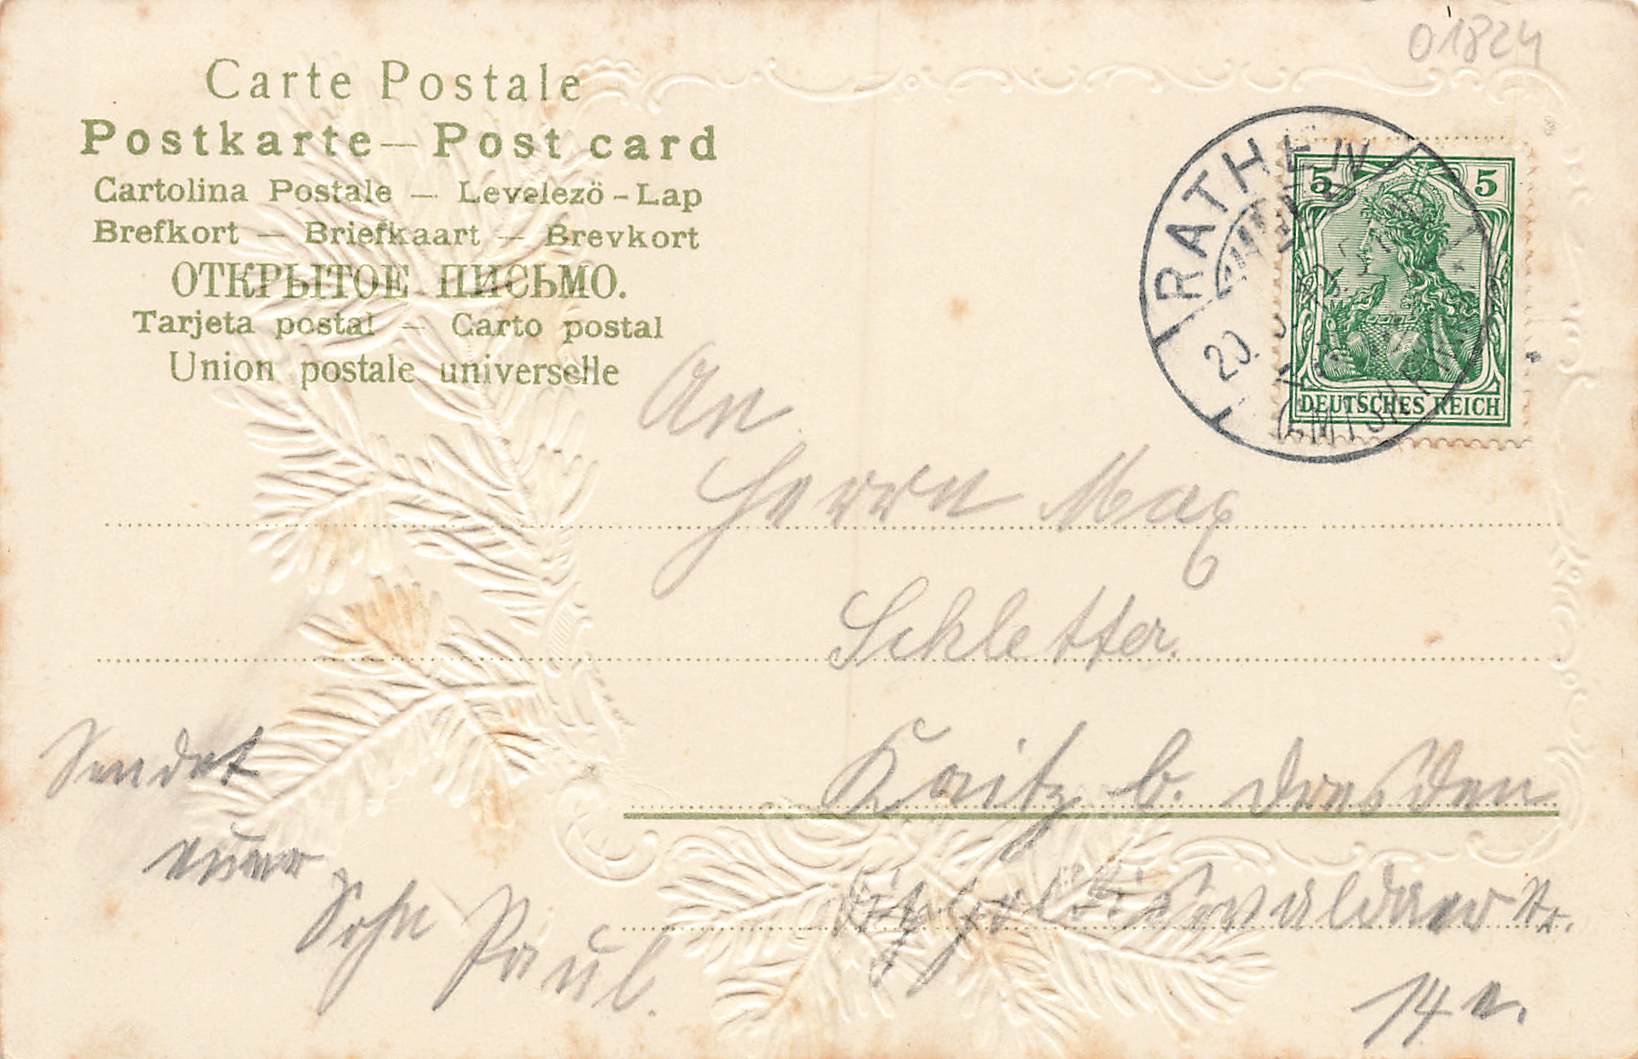 01824
Carte Postale
Postkarte — Post card
Cartolina Postale — Levelezö - Lap
Brefkort — Briefkaart — Brevkort
ОТКРЫТОЕ ПИСЬМО.
Tarjeta postal — Carto postal
Union postale universelle
RATHEN
20.
5 5
DEUTSCHES REICH
An
Herrn Max
Schletter.
Kaitz b. Dresden
Str.
14
Sendet
euer
Sohn Paul.